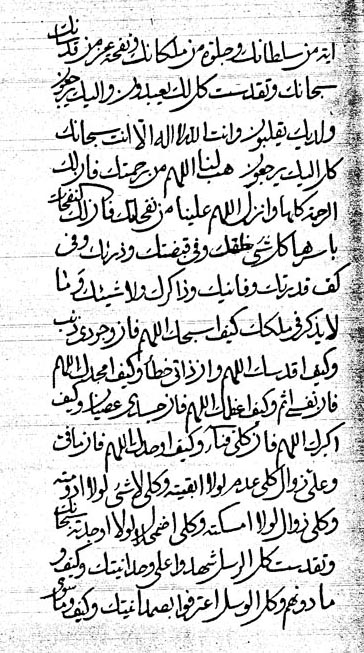 ابه من سلطانك وجلوة من ملكانك ونفحة عز من قدسك
سبحانك وتقدست كل لك يعبدون واليك يرجعون
ولديك يقلبون وانت الله لا اله الا انت سبحانك
كل اليك يرجعون هب لنا اللهم من رحمتك فان لك
الرحمة كلها وانزل اللهم علينا من نفحاتك فان لك النفحات
باسرها كل شي خلقك وفي قبضتك وذرتك وفي
كف قدرتك وفانيك وذاكرك ولا شيتك وما
لا يذكر في ملكك كيف اسبحك اللهم فان وجودي ذنب
وكيف اقدسك اللهم وان ذاتي خطأ وكيف امجدك اللهم
فان نفسي اثم وكيف اعظمك اللهم فان حسناتي عصيان وكيف
اكبرك اللهم فان كلي فناء وكيف اوحدك اللهم فان بقائي
وعلي زوال كلي عدم لولا ابقيته وكلي لا شي لولا اذوته
وكلي زوال لولا امسكته وكلي اضمحلال لولا اوجدته سبحانك
وتقدست كل الرسل شهدوا على وحدانيتك وكيف و
ما دونهم وكل الوسل اعترفوا بصمدانيتك وكيف وما سوى